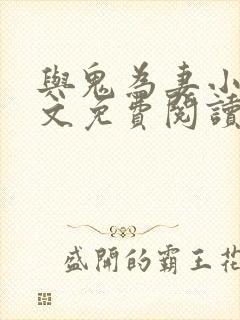 與鬼為妻小
文免費閱讀
盛開的霸王花